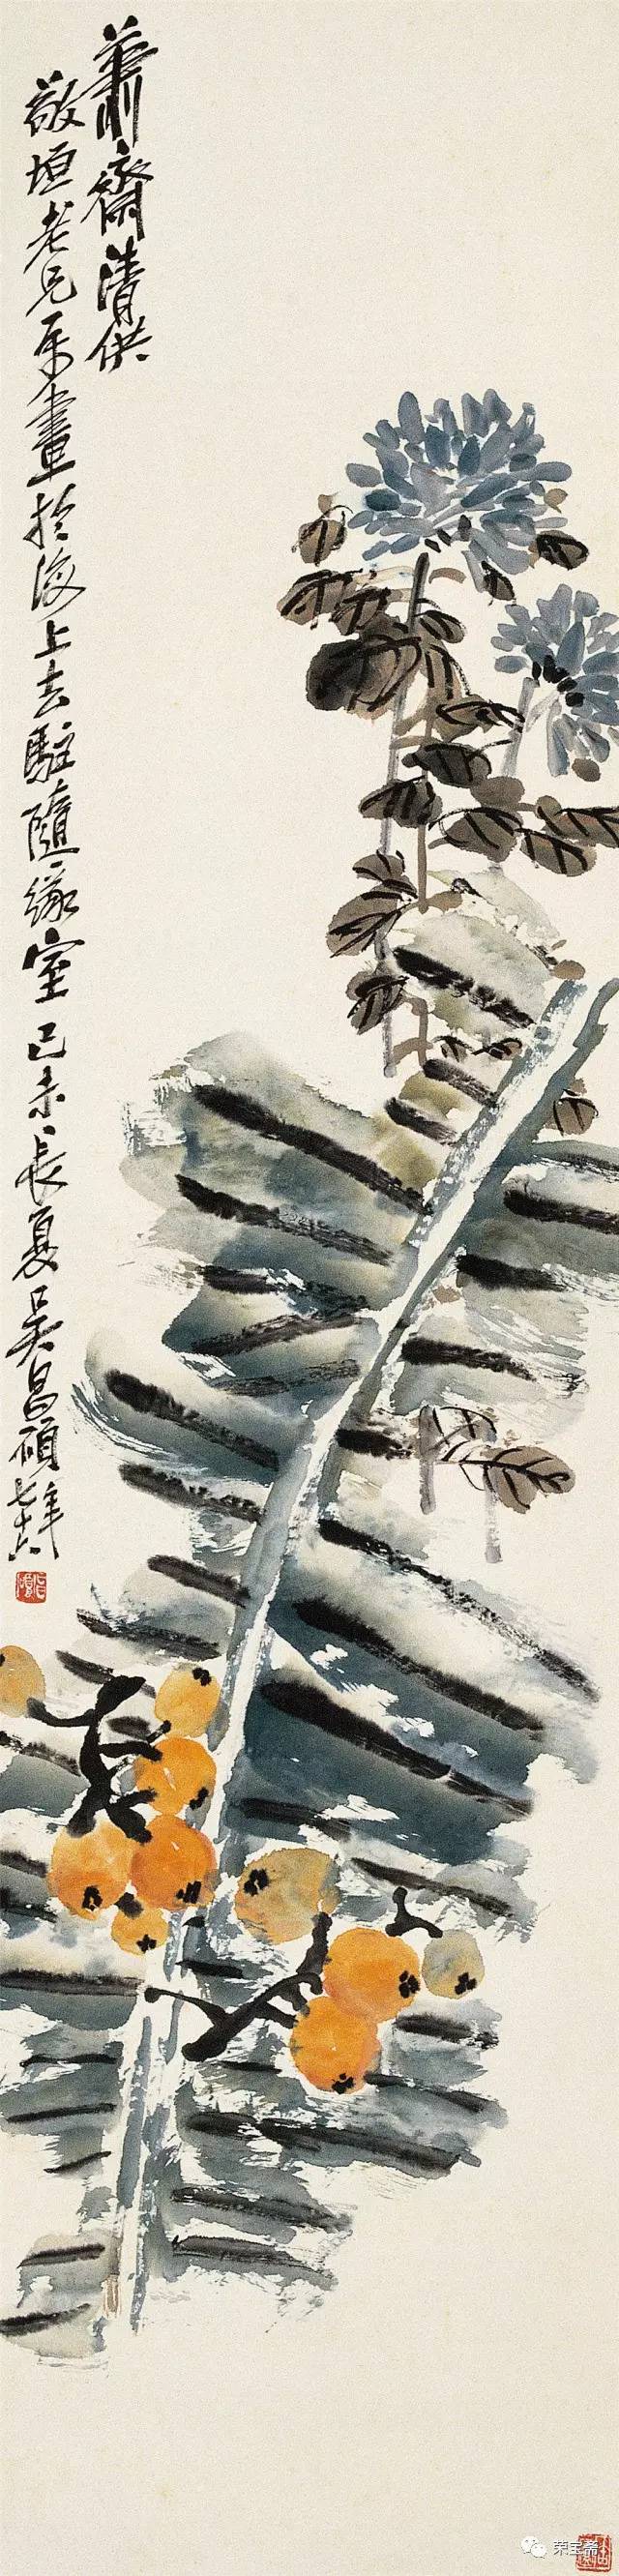 萧齋清供
敬垣老兄属畫於海上去駐隨緣室己未長夏吳昌碩年七十六
荣宝斋